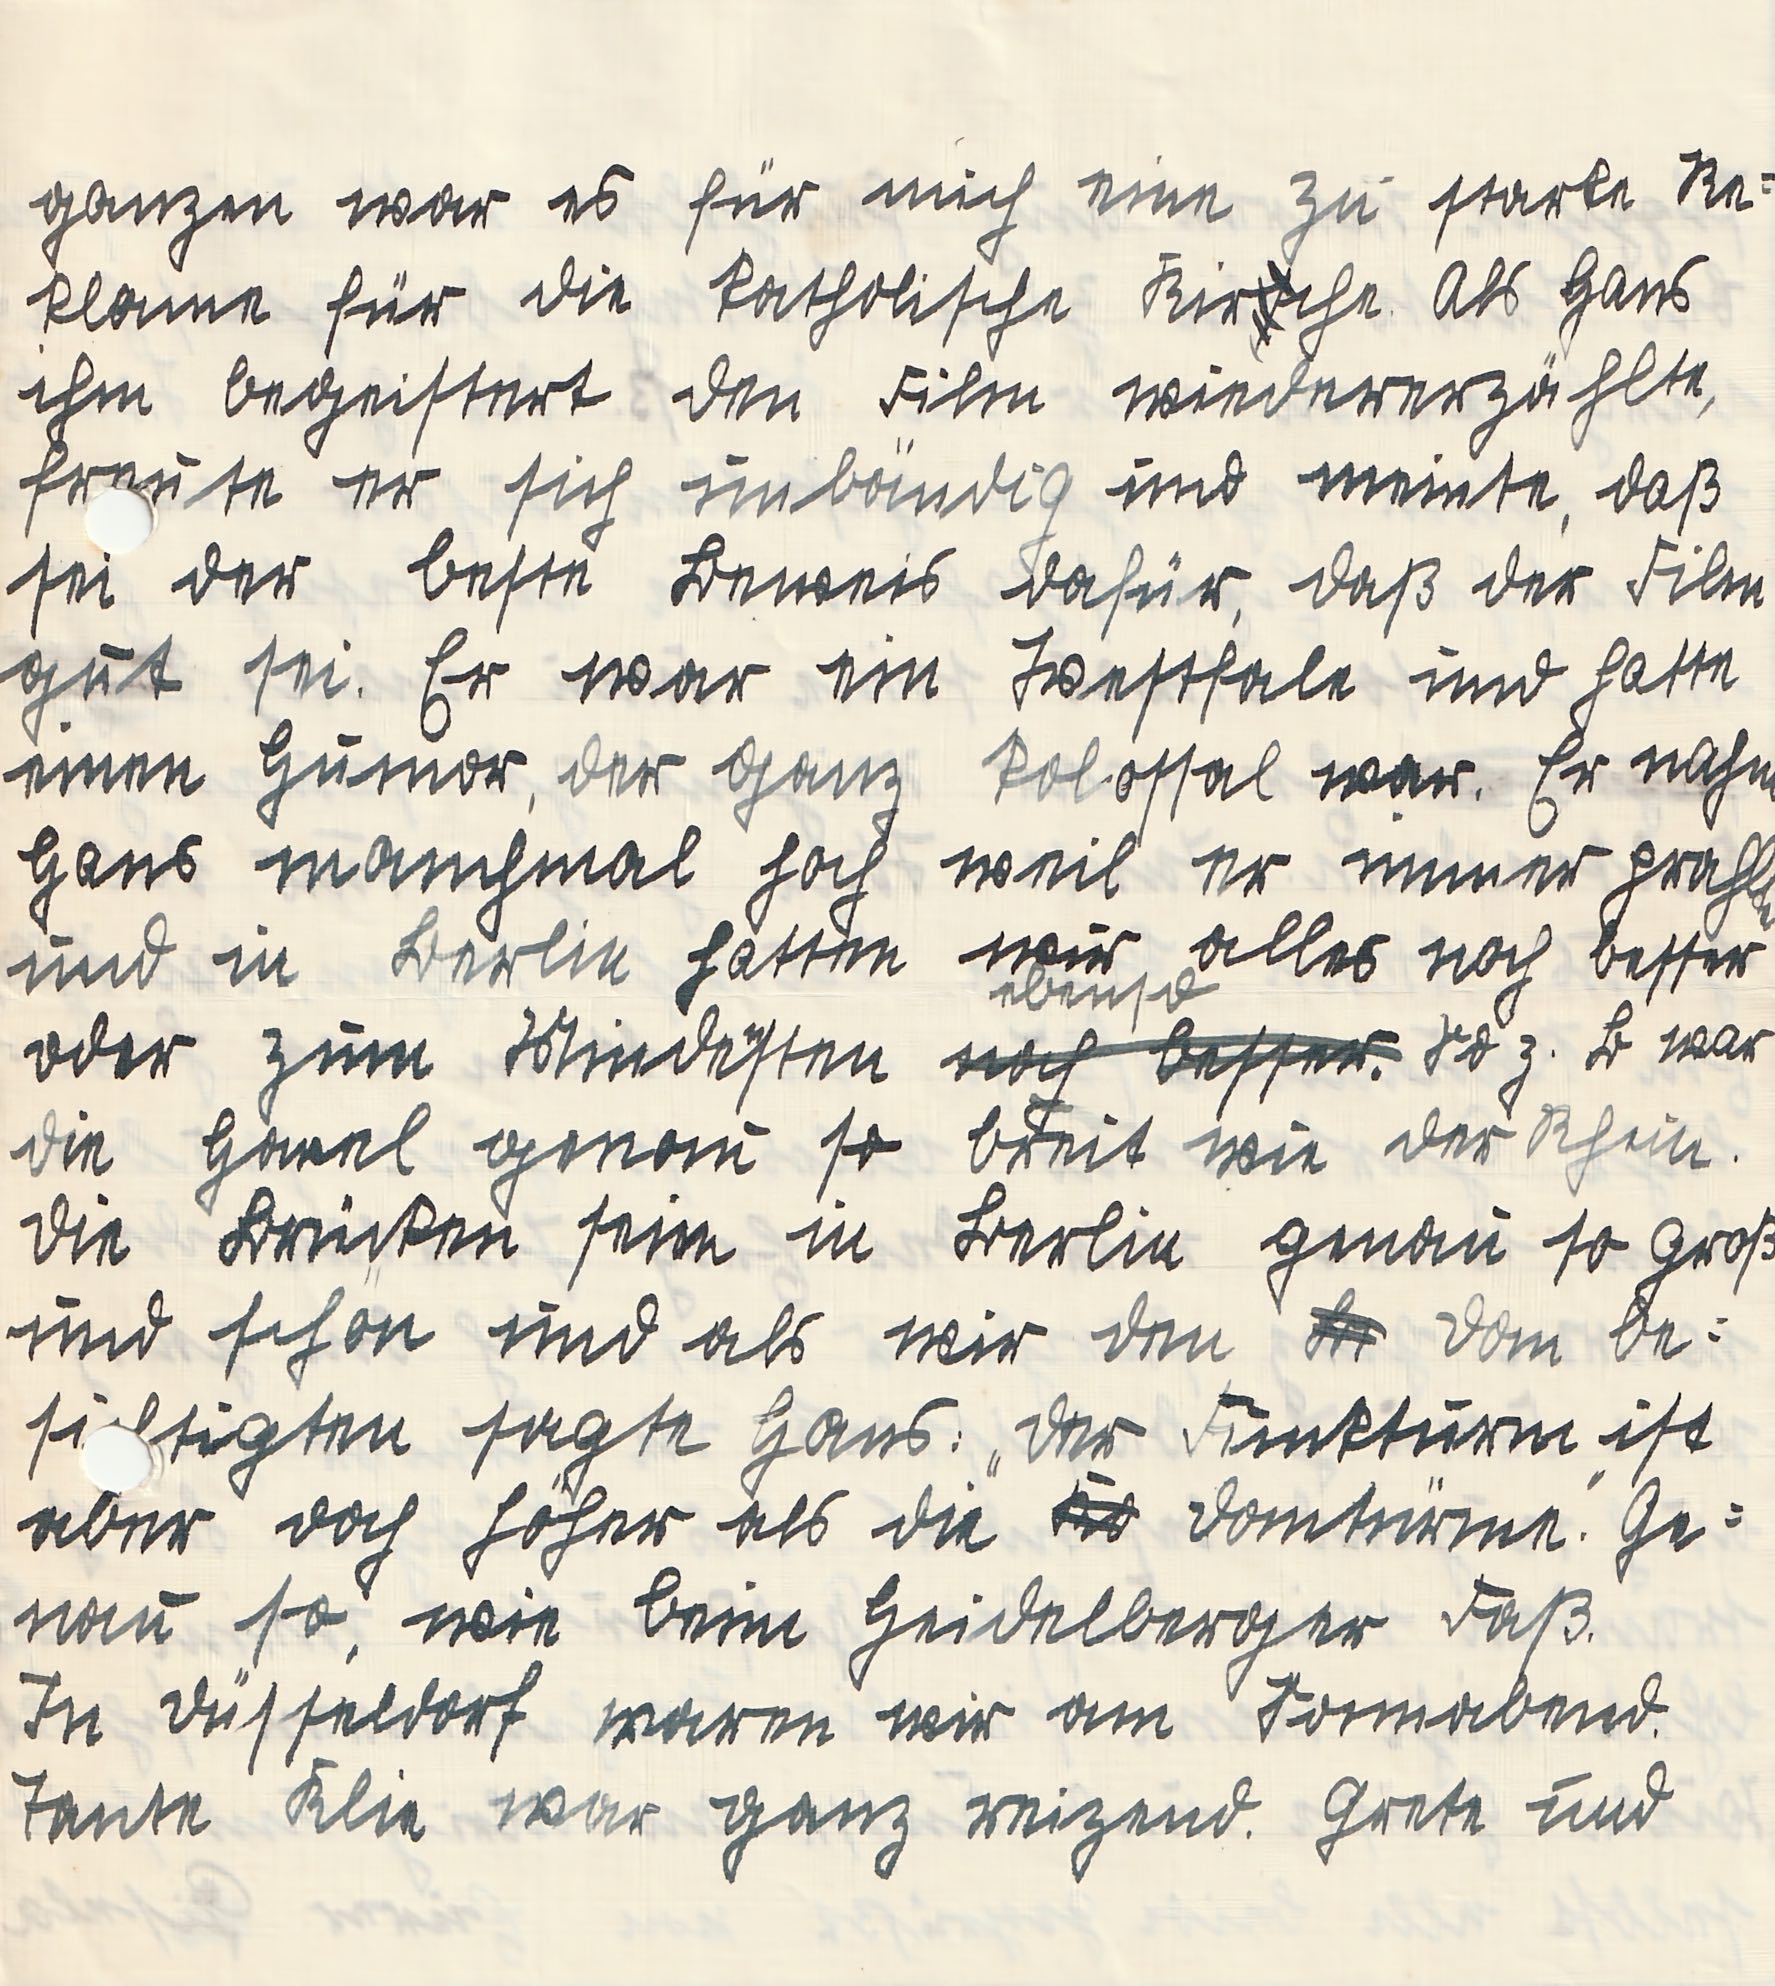 ganzen war es für mich eine zu starke Re=
klame für die katholische Kirche. Als Hans
ihm begeistert den Film wiedererzählte,
freute er sich unbändig und meinte, daß
sei der beste Beweis dafür, daß der Film
gut sei. Er war ein Westfale und hatte
einen Humor, der ganz kolossal war. Er nahm
Hans manchmal hoch weil er immer prahlte
und in Berlin hatten wir alles noch besser
ebenso
oder zum Mindesten noch besser. So z. B war
die Havel genau so breit wie der Rhein.
Die Brücken seien in Berlin genau so groß
und schön und als wir den Dom be=
sichtigten sagte Hans: „Der Funkturm ist
aber doch höher als die Domtürme. Ge=
nau so, wie beim Heidelberger Faß.
In Düsseldorf waren wir am Sonnabend.
Tante Klie war ganz reizend. Grete und